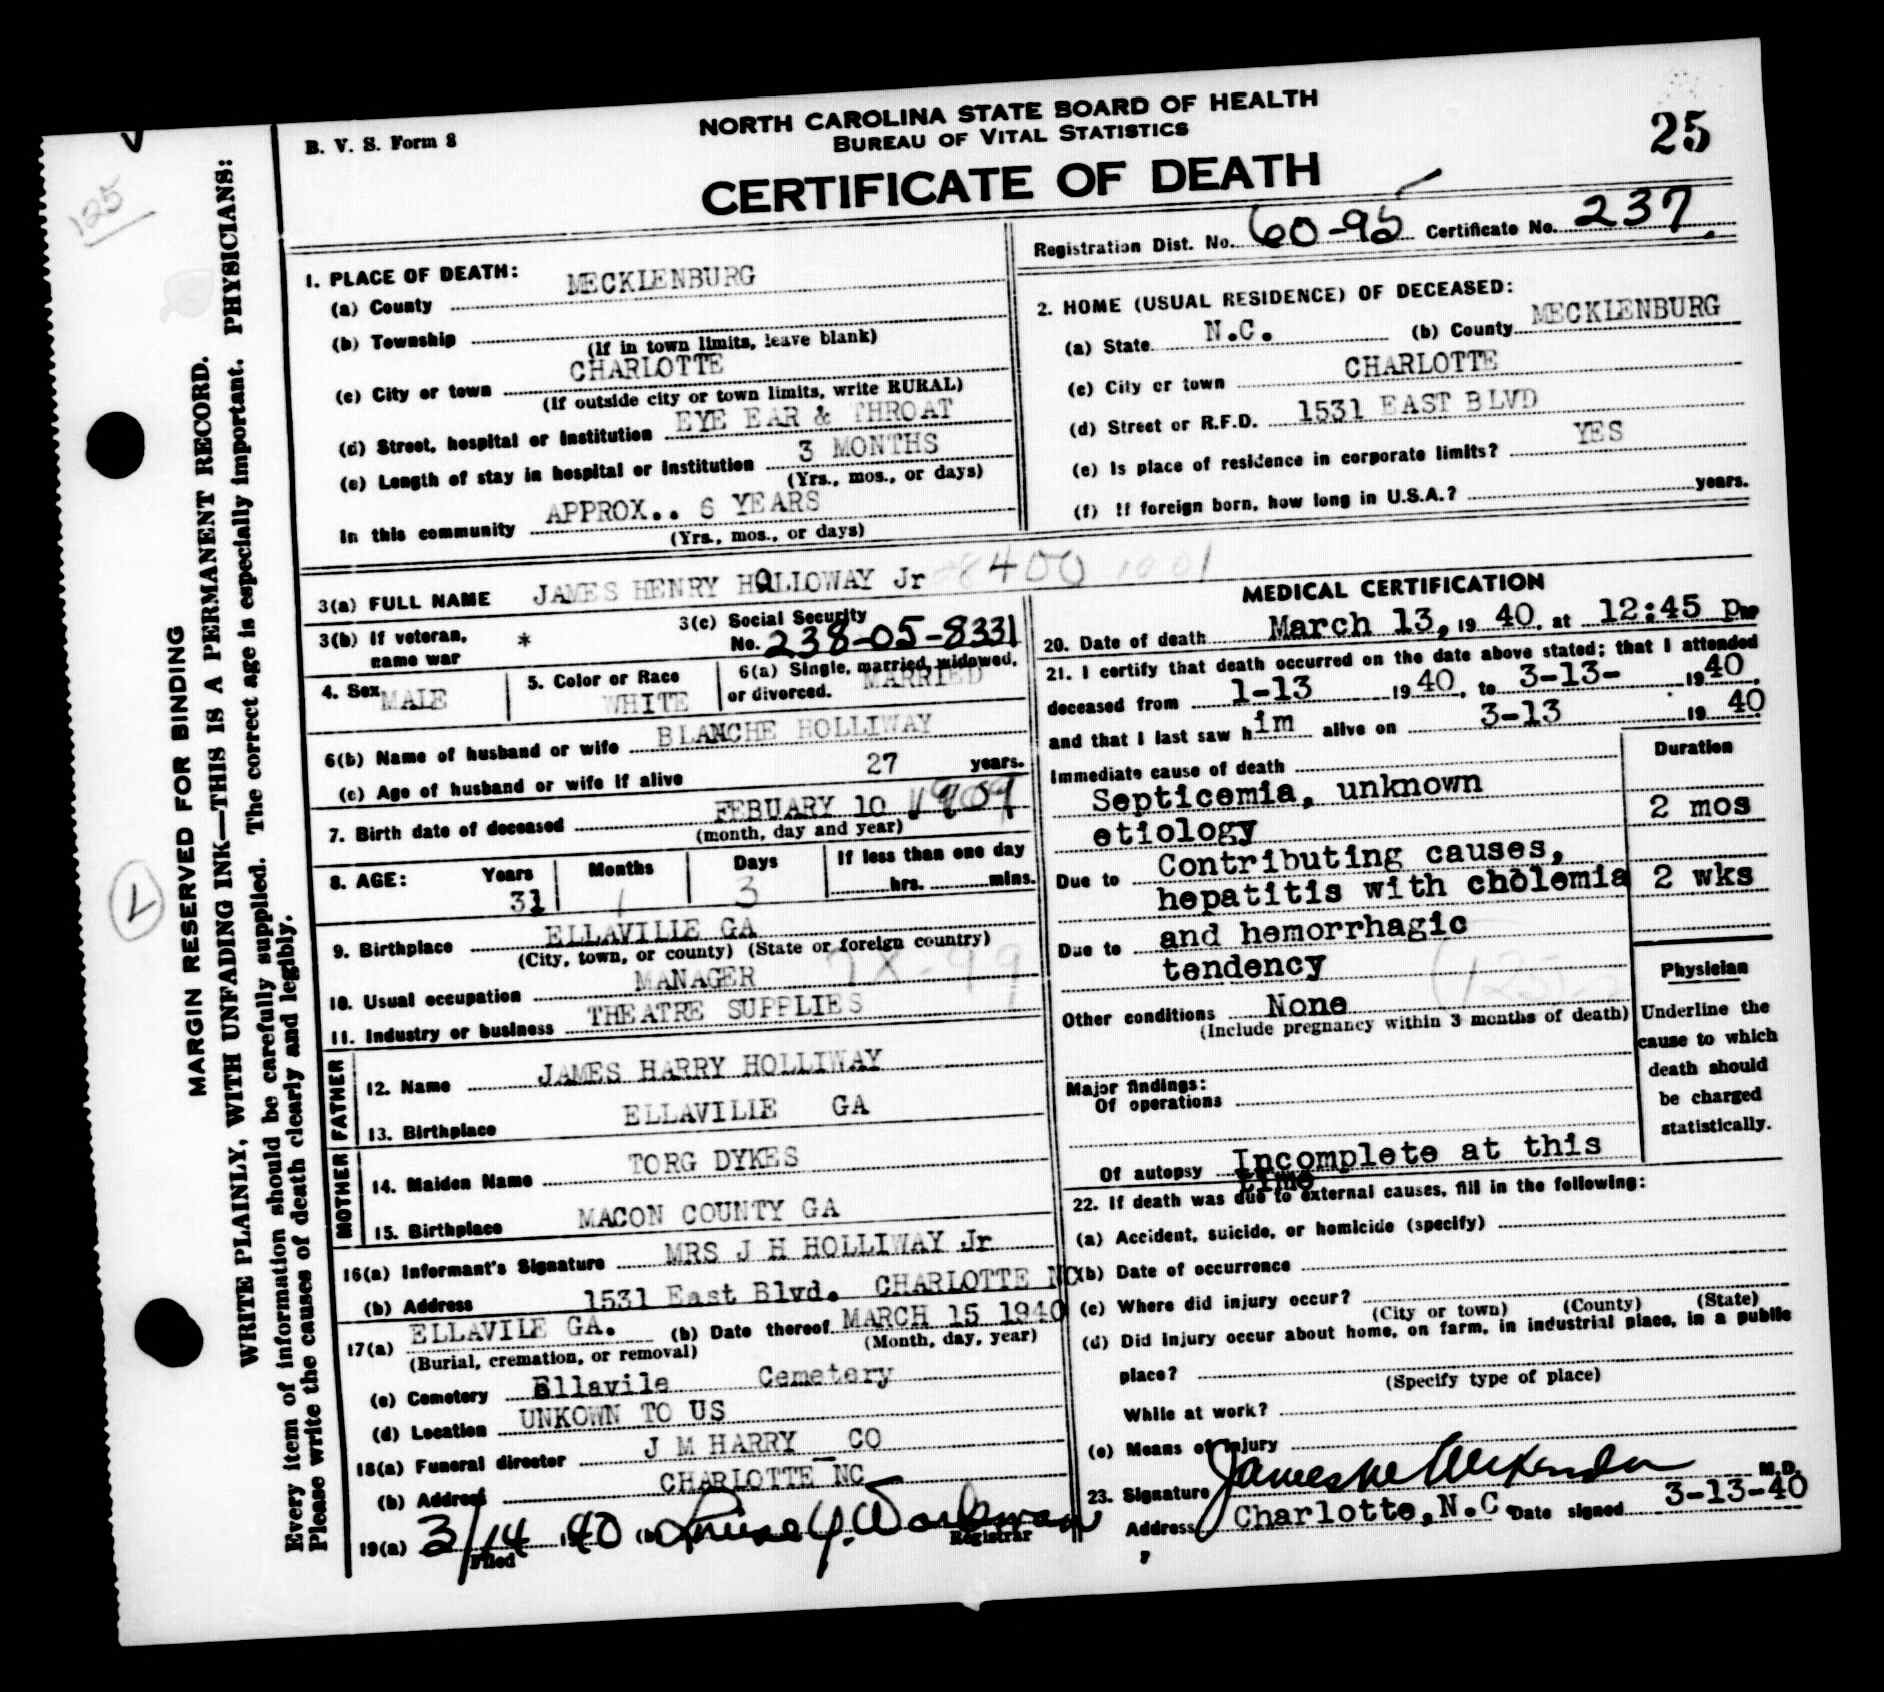 B. V. S. Form 8
NORTH CAROLINA STATE BOARD OF HEALTH
BUREAU OF VITAL STATISTICS
CERTIFICATE OF DEATH
25
125
MARGIN RESERVED FOR BINDING
WRITE PLAINLY, WITH UNFADING INK—THIS IS A PERMANENT RECORD.
Every item of information should be carefully supplied. The correct age is especially important. PHYSICIANS:
Please write the causes of death clearly and legibly.
Registration Dist. No. 60-95 Certificate No. 237
1. PLACE OF DEATH:
(a) County MECKLENBURG
(b) Township
(If in town limits, leave blank)
(c) City or town CHARLOTTE
(If outside city or town limits, write RURAL)
(d) Street, hospital or institution EYE EAR & THROAT
(e) Length of stay in hospital or institution 3 MONTHS
(Yrs., mos., or days)
In this community APPROX.. 6 YEARS
(Yrs., mos., or days)
2. HOME (USUAL RESIDENCE) OF DECEASED:
(a) State N.C. (b) County MECKLENBURG
(c) City or town CHARLOTTE
(d) Street or R.F.D. 1531 EAST BLVD
(e) Is place of residence in corporate limits? YES
(f) If foreign born, how long in U.S.A.? years.
3(a) FULL NAME JAMES HENRY HOLLOWAY Jr 8400 1001
3(b) If veteran, name war *
3(c) Social Security No. 238-05-8331
4. Sex MALE
5. Color or Race WHITE
6(a) Single, married, widowed, or divorced. MARRIED
6(b) Name of husband or wife BLANCHE HOLLIWAY
(c) Age of husband or wife if alive 27 years.
7. Birth date of deceased FEBUARY 10 1909
(month, day and year)
8. AGE: Years 31 Months 1 Days 3 If less than one day hrs. mins.
9. Birthplace ELLAVILLE GA
(City, town, or county) (State or foreign country)
10. Usual occupation MANAGER
11. Industry or business THEATRE SUPPLIES
FATHER
12. Name JAMES HARRY HOLLIWAY
13. Birthplace ELLAVILLE GA
MOTHER
14. Maiden Name TORG DYKES
15. Birthplace MACON COUNTY GA
16(a) Informant's Signature MRS J H HOLLIWAY Jr
(b) Address 1531 East Blvd. CHARLOTTE NC
17(a) ELLAVILE GA. (b) Date thereof MARCH 15 1940
(Burial, cremation, or removal) (Month, day, year)
(c) Cemetery Ellavile Cemetery
(d) Location UNKOWN TO US
18(a) Funeral director J M HARRY _ CO
(b) Address CHARLOTTE NC
19(a) 3/14 1940 (b) Workman
Filed Registrar
MEDICAL CERTIFICATION
20. Date of death March 13, 19 40, at 12:45 p m
21. I certify that death occurred on the date above stated; that I attended
deceased from 1-13 19 40, to 3-13- 19 40,
and that I last saw him alive on 3-13 19 40
Duration
Immediate cause of death
Septicemia, unknown
etiology 2 mos
Due to Contributing causes,
hepatitis with cholemia 2 wks
Due to and hemorrhagic
tendency
Other conditions None
(Include pregnancy within 3 months of death)
Major findings:
Of operations
Of autopsy Incomplete at this
time
Physician
Underline the
cause to which
death should
be charged
statistically.
22. If death was due to external causes, fill in the following:
(a) Accident, suicide, or homicide (specify)
(b) Date of occurrence
(c) Where did injury occur?
(City or town) (County) (State)
(d) Did injury occur about home, on farm, in industrial place, in a public
place?
(Specify type of place)
While at work?
(e) Means of injury
23. Signature James M. Alexander M.D.
Address Charlotte, N.C. Date signed 3-13-40